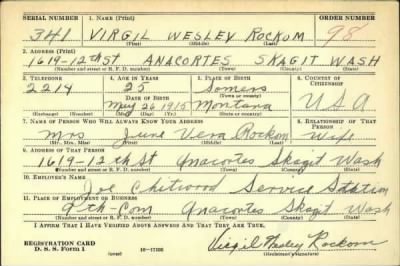 SERIAL NUMBER 1. NAME (Print) ORDER NUMBER
341 VIRGIL WESLEY ROCKOM 98
(First) (Middle) (Last)
2. ADDRESS (Print)
1619-12th St ANACORTES SKAGIT WASH
(Number and street or R. F. D. number) (Town) (County) (State)
3. TELEPHONE 4. AGE IN YEARS 5. PLACE OF BIRTH 6. COUNTRY OF CITIZENSHIP
2214 25 Somers
DATE OF BIRTH (Town or county)
May 26 1915 Montana USA
(Exchange) (Number) (Mo.) (Day) (Yr.) (State or country)
7. NAME OF PERSON WHO WILL ALWAYS KNOW YOUR ADDRESS 8. RELATIONSHIP OF THAT PERSON
Mrs June Vera Rockom Wife
(Mr., Mrs., Miss) (First) (Middle) (Last)
9. ADDRESS OF THAT PERSON
1619-12th St Anacortes Skagit Wash
(Number and street or R. F. D. number) (Town) (County) (State)
10. EMPLOYER'S NAME
Joe Chitwood Service Station
11. PLACE OF EMPLOYMENT OR BUSINESS
9th-Com Anacortes Skagit Wash
(Number and street or R. F. D. number) (Town) (County) (State)
I AFFIRM THAT I HAVE VERIFIED ABOVE ANSWERS AND THAT THEY ARE TRUE.
REGISTRATION CARD
D. S. S. Form 1 (over) 16-17105 Virgil Wesley Rockom
(Registrant's signature)